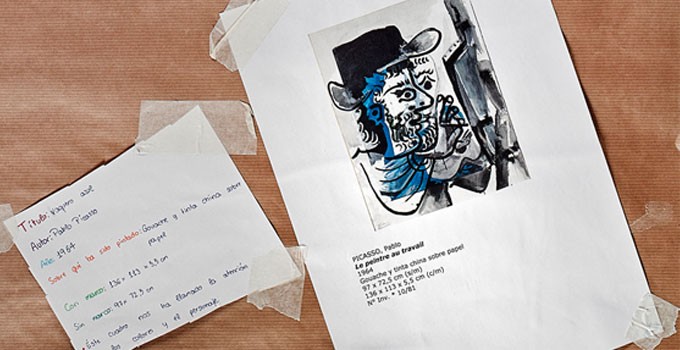 Título: Vaquero azul
Autor: Pablo Picasso
Año: 1964
Sobre qué ha sido pintado: Gouache y tinta china sobre
papel
Con marco: 136 x 113 x 5,5 cm
Sin marco: 97 x 72,5 cm
Este cuadro nos ha llamado la atención
los colores y el personaje.
PICASSO, Pablo
Le peintre au travail
1964
Gouache y tinta china sobre papel
97 x 72,5 cm (s/m)
136 x 113 x 5,5 cm (c/m)
Nº Inv. * 10/81